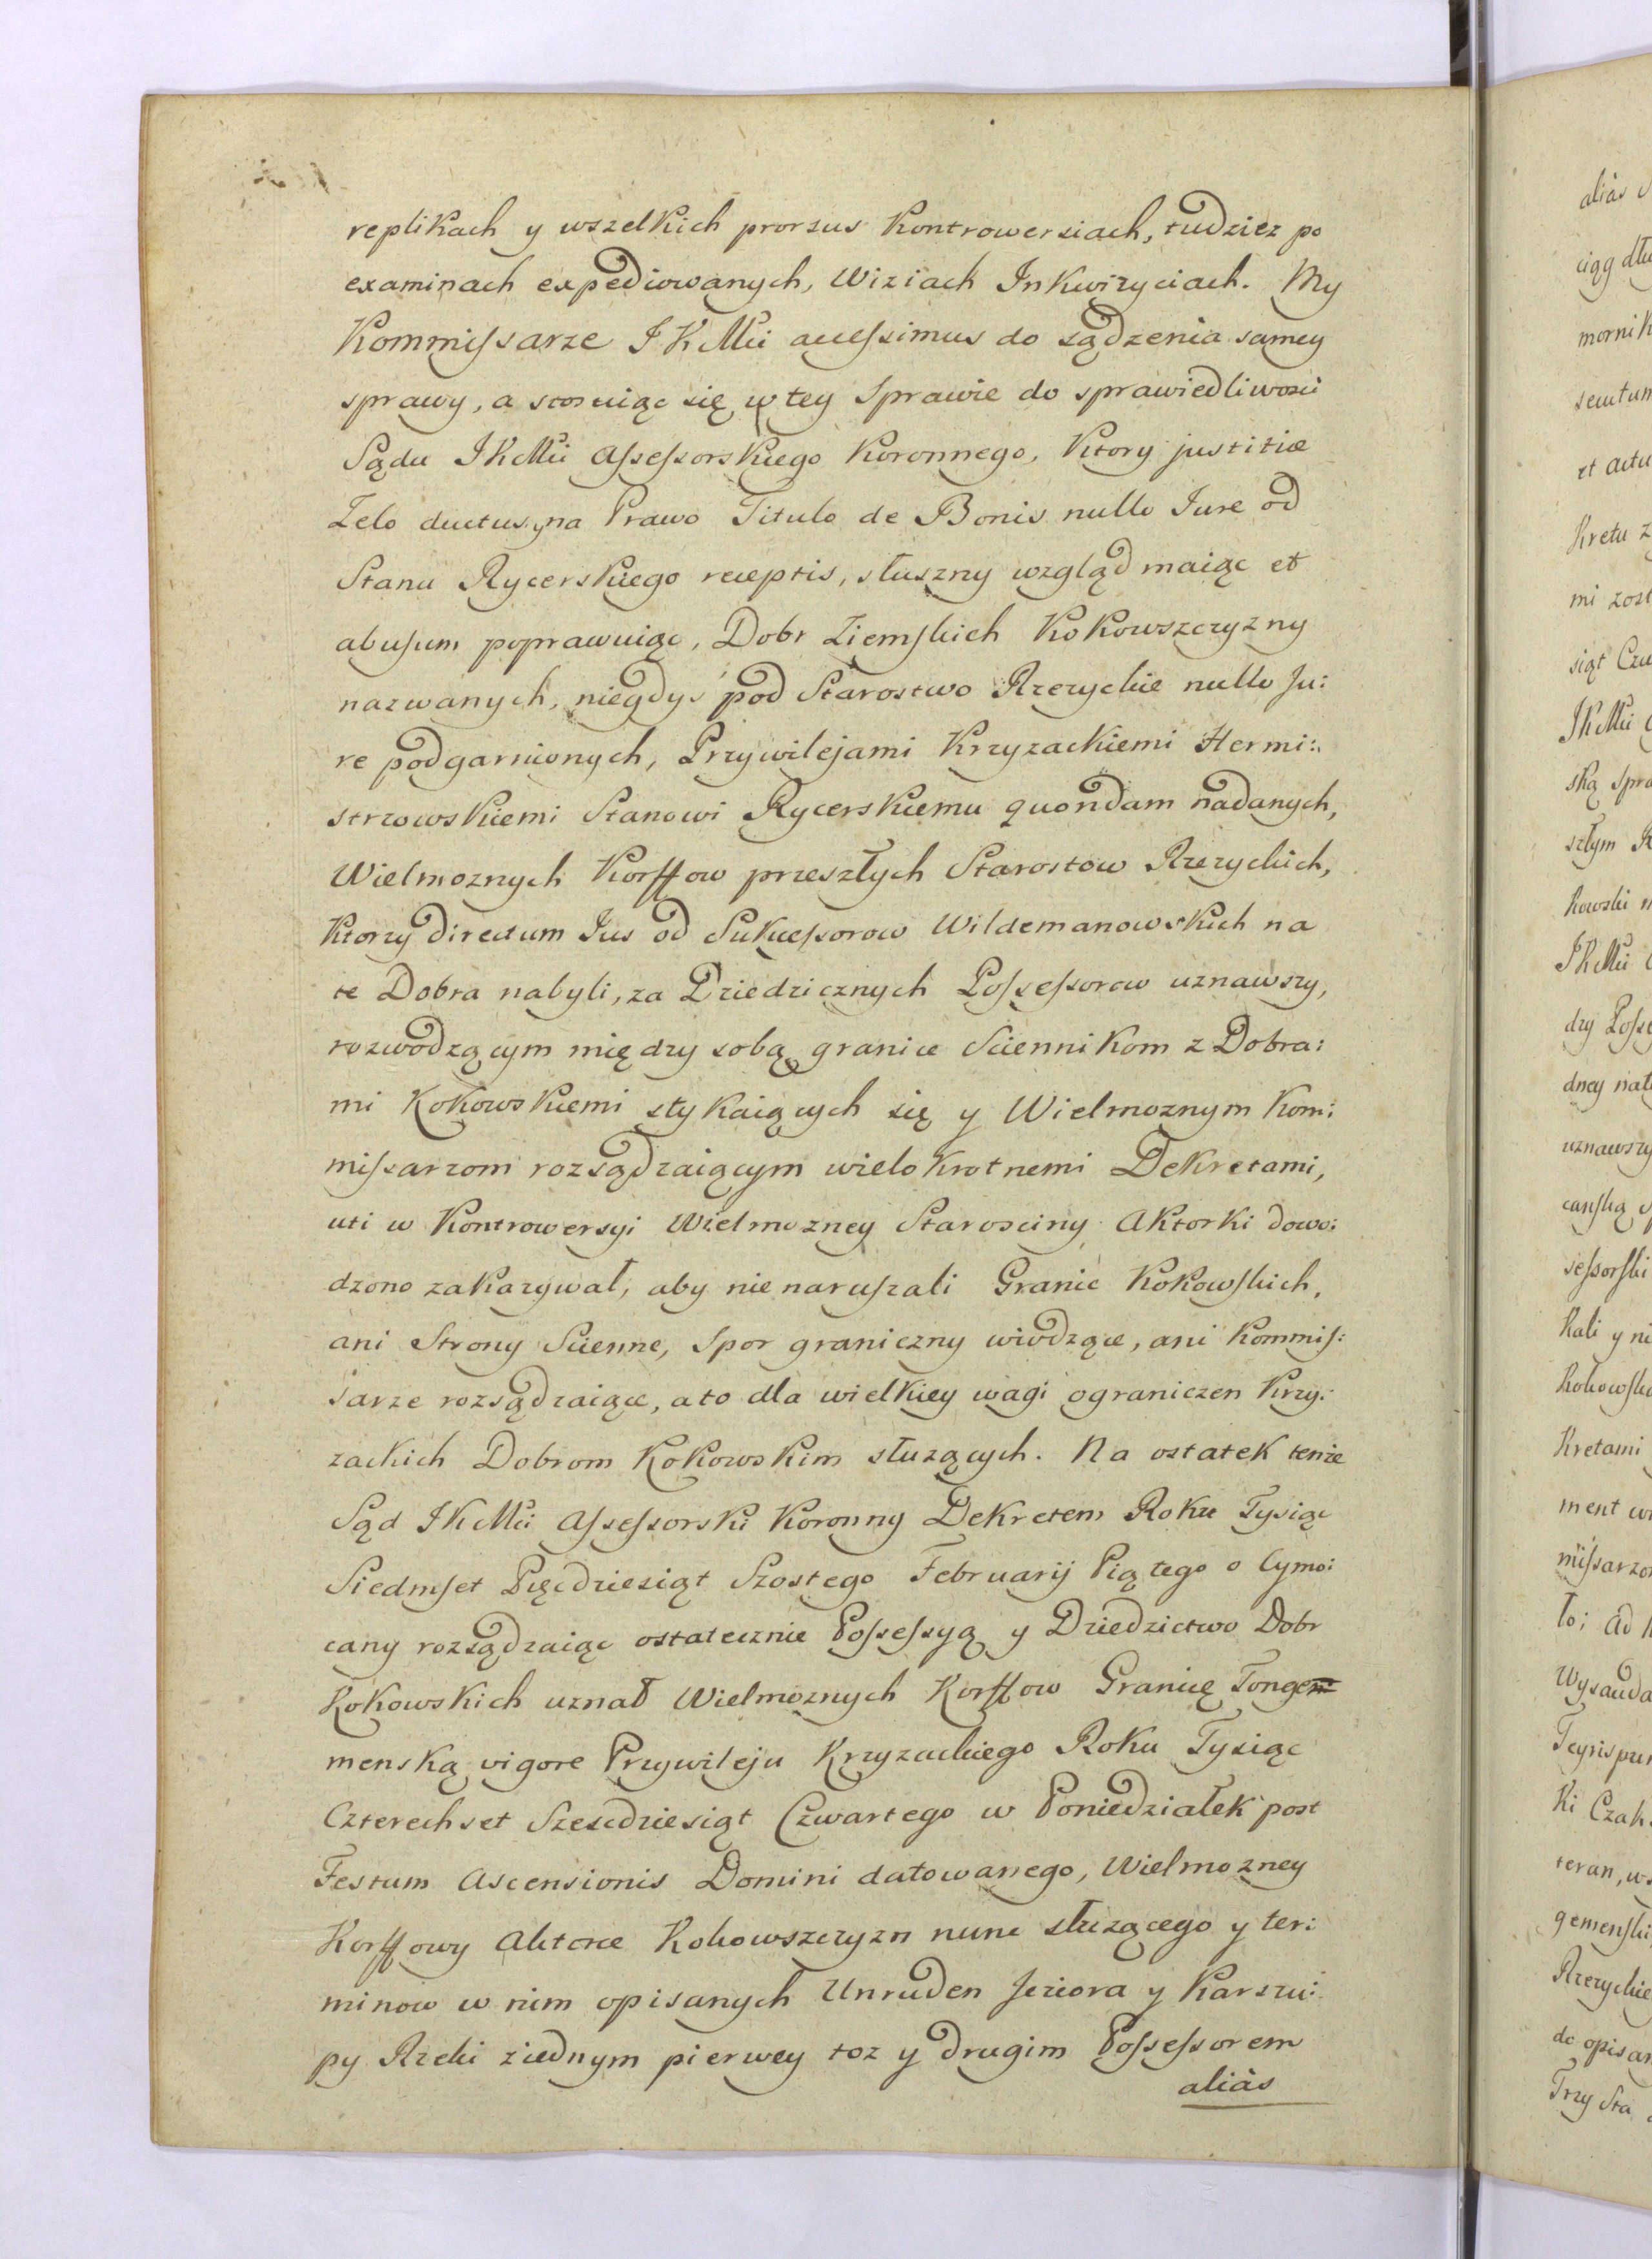 replikach y wszelkich prorsus kontrowersiach, tudziez po
examinach expediowanych, Wiziach Inkwizyciach. My
Kommissarze JKMci accessimus do sądzenia samey
sprawy, a stosuiąc się w tey Sprawie do sprawiedliwosci
Sądu JKMci Assessorskiego Koronnego, Ktory justitiæ
Zelo ductus, na Prawo Titulo de Bonis nullo Iure od
Stanu Rycerskiego receptis, słuszny wzgląd maiąc et
abusum poprawuiąc, Dobr Ziemskich Kokowszczyzny
nazwanych, niegdys pod Starostwo Rzezyckie nullo Ju:
re podgarnionych, Przywilejami Krzyzackiemi Hermi:
strzowskiemi Stanowi Rycerskiemu quondam nadanych,
Wielmoznych Korffow przeszłych Starostow Rzezyckich,
Ktorzy directum Ius od Sukcessorow Wildemanowskich na
te Dobra nabyli, za Dziedzicznych Possessorow uznawszy,
rozwodzącym między sobą granice Sciennikom z Dobra:
mi Kokowskiemi stykaiących się y Wielmoznym Kom:
missarzom rozsądzaiącym wielokrotnemi Dekretami,
uti w Kontrowersyi Wielmozney Starosciny Aktorki dowo:
dzono zakazywał, aby nie naruszali Granic Kokowskich,
ani Strony Scienne, Spor graniczny wiodzące, ani Kommis:
sarze rozsądzaiące, a to dla wielkiey wagi ograniczen Krzy:
zackich Dobrom Kokowskim słuzących. Na ostatek tenże
Sąd JKMci Assessorski Koronny Dekretem Roku Tysiąc
Siedmset Pięcdziesiąt Szostego Februarij Piątego o Cymo:
cany rozsądzaiąc ostatecznie Possessyą y Dziedzictwo Dobr
Kokowskich uznał Wielmoznych Korffow Granicę Tongem=
menską vigore Przywileju Krzyzackiego Roku Tysiąc
Czterechset Szescdziesiąt Czwartego w Poniedziałek post
Festum Ascensionis Domini datowanego, Wielmozney
Korffowy Aktorce Kokowszczyzn nunc służącego y ter:
minow w nim opisanych Unruden Jeziora y Karszu:
py Rzeki ziednym pierwey toz y drugim Possessorem
aliàs